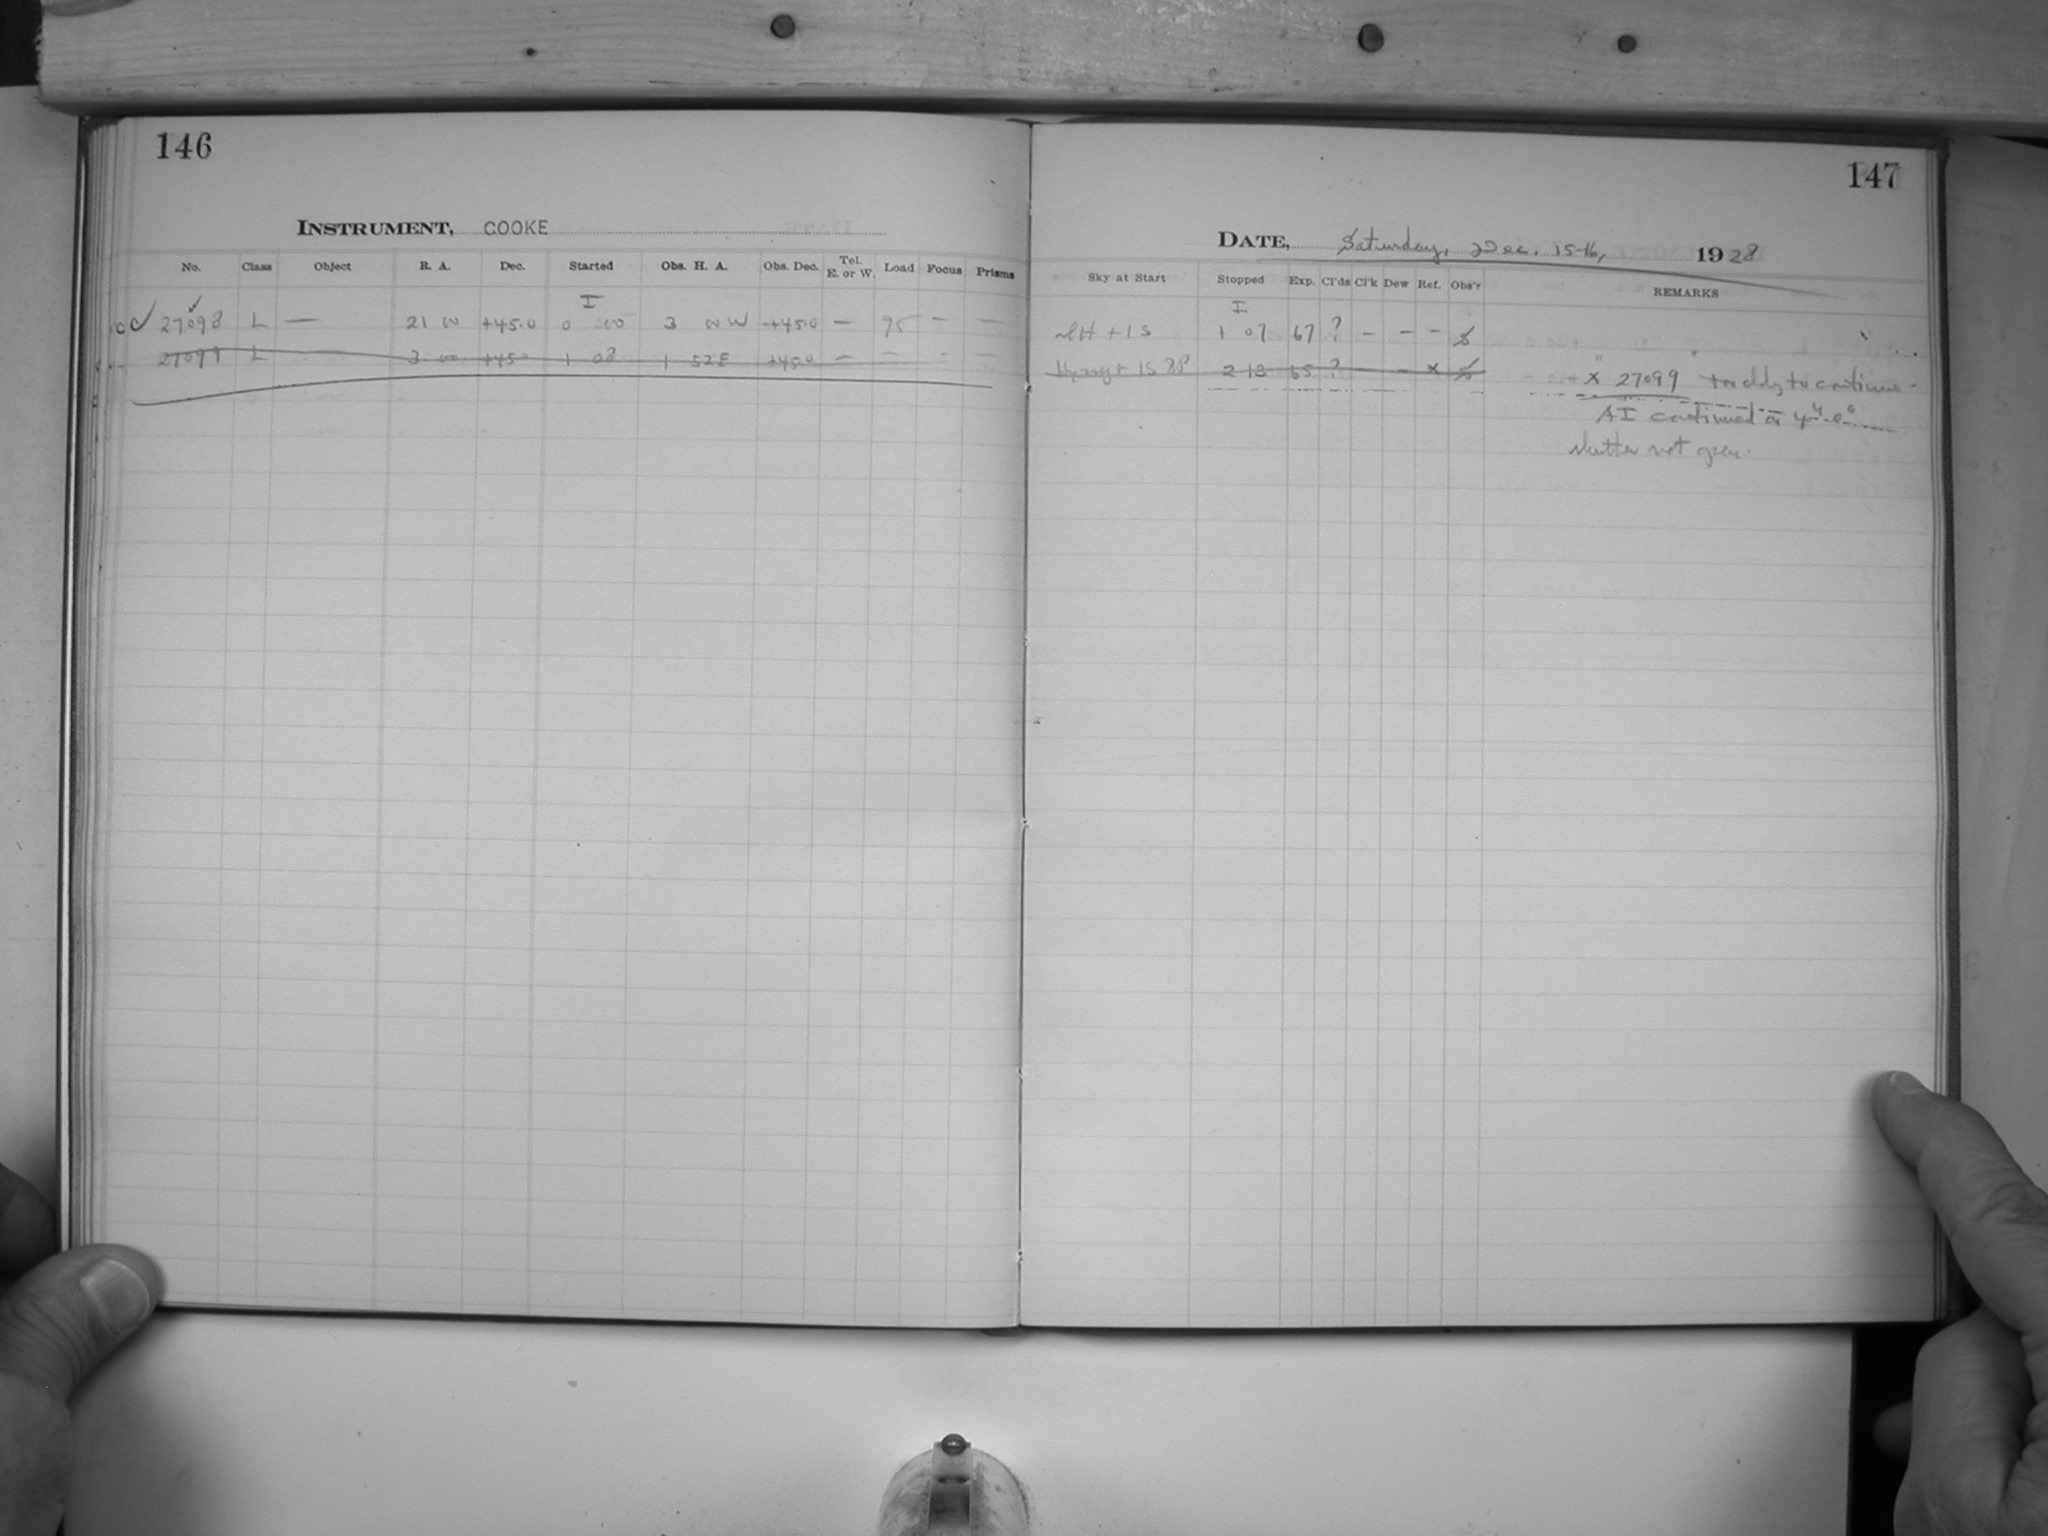 146
INSTRUMENT, COOKE
No. Class Object R. A. Dec. Started Obs. H. A. Obs. Dec. Tel. E. or W. Load Focus Prisms
I
27098 L — 21 00 +45.0 0 00 3 00 W +45.0 — 95 – –
27099 L 3 00 +45.0 1 08 1 52E +45.0 — – – –
147
DATE, Saturday, Dec. 15-16, 1928
Sky at Start Stopped Exp. Cl'ds Cl'k Dew Ref. Obs'r REMARKS
I
+ 1 S 1 07 67 ? – – –
Hazy + 1S 2 13 65 ? – – x
x 27099 too cldy to continue -
AI continued on
shutter not open.